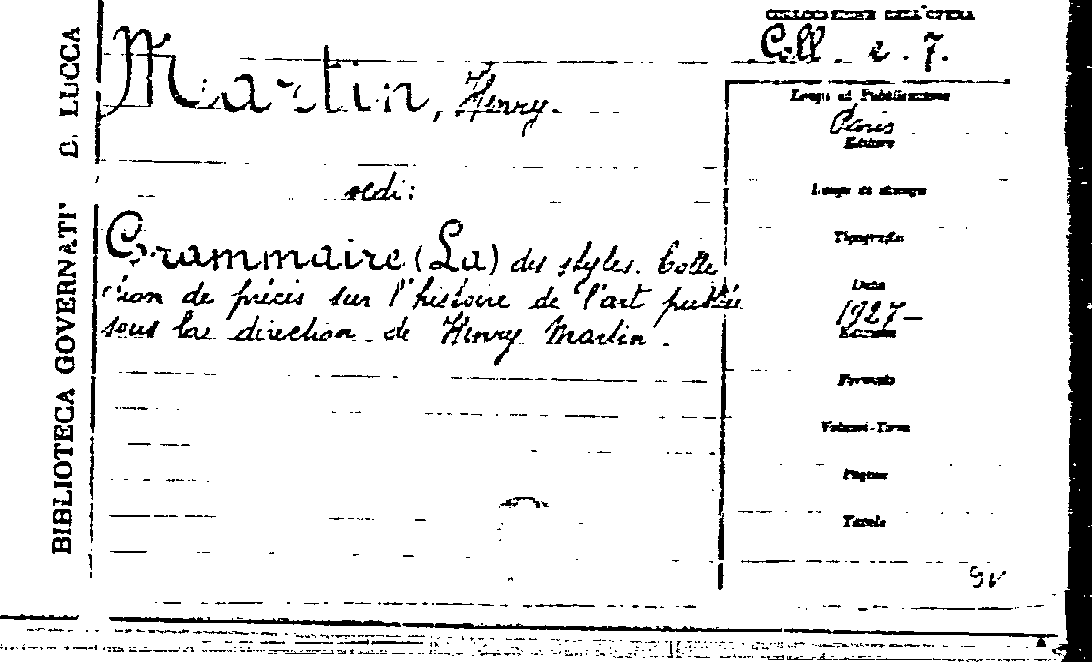 BIBLIOTECA GOVERNATI D. LUCCA
COLLOCAZIONE DELL'OPERA
Coll. e. 7.
Martin, Henry.
vedi:
Grammaire (La) des styles. Colle
ction de précis sur l'histoire de l'art publiée
sous la direction de Henry Martin.
Luogo di Pubblicazione
Paris
Editore
Luogo di stampa
Tipografia
Data
1927-
Edizione
Formato
Volumi-Tomi
Pagine
Tavole